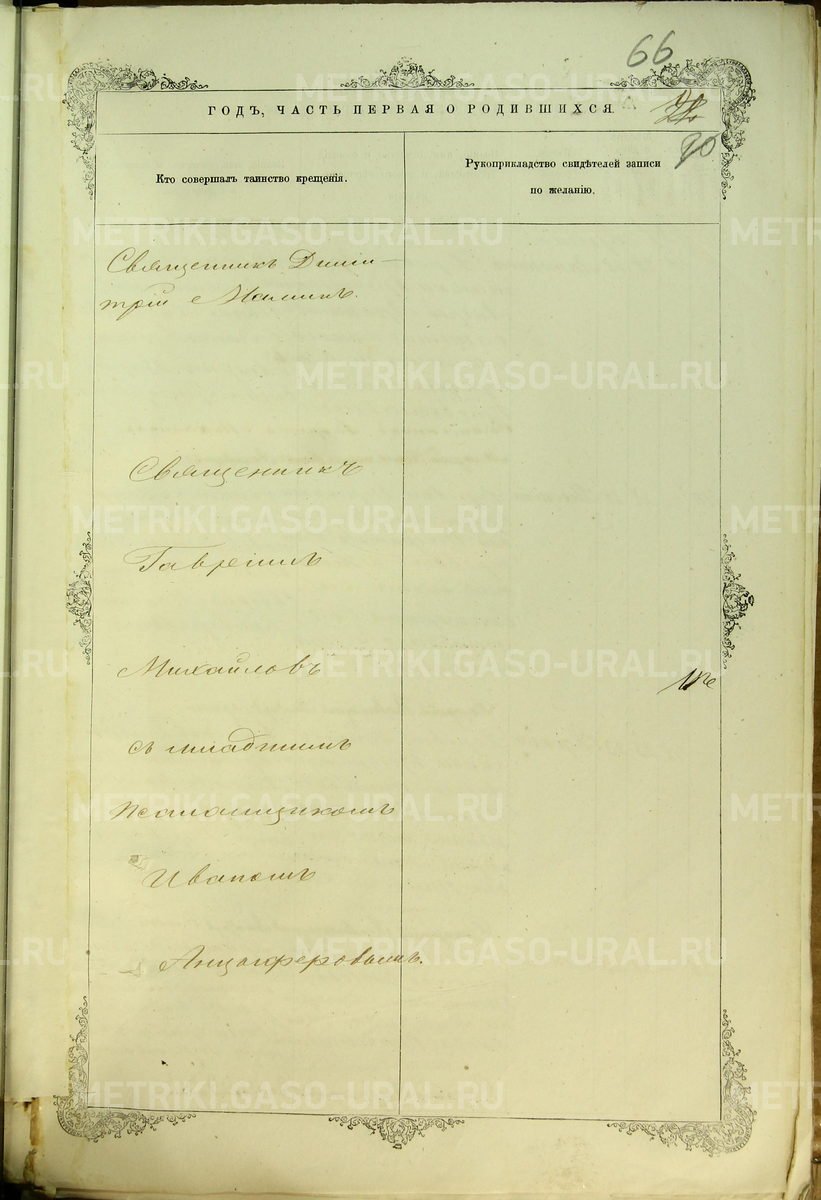 66
ГОДЪ, ЧАСТЬ ПЕРВАЯ О РОДИВШИХСЯ.
70
Кто совершалъ таинство крещенія.
Рукоприкладство свидѣтелей записи
по желанію.
Священникъ Дими-
трій Маминъ.
Священникъ
Гавріилъ
Михайловъ
съ младшимъ
Иваномъ
Анциферовымъ.
METRIKI.GASO-URAL.RU